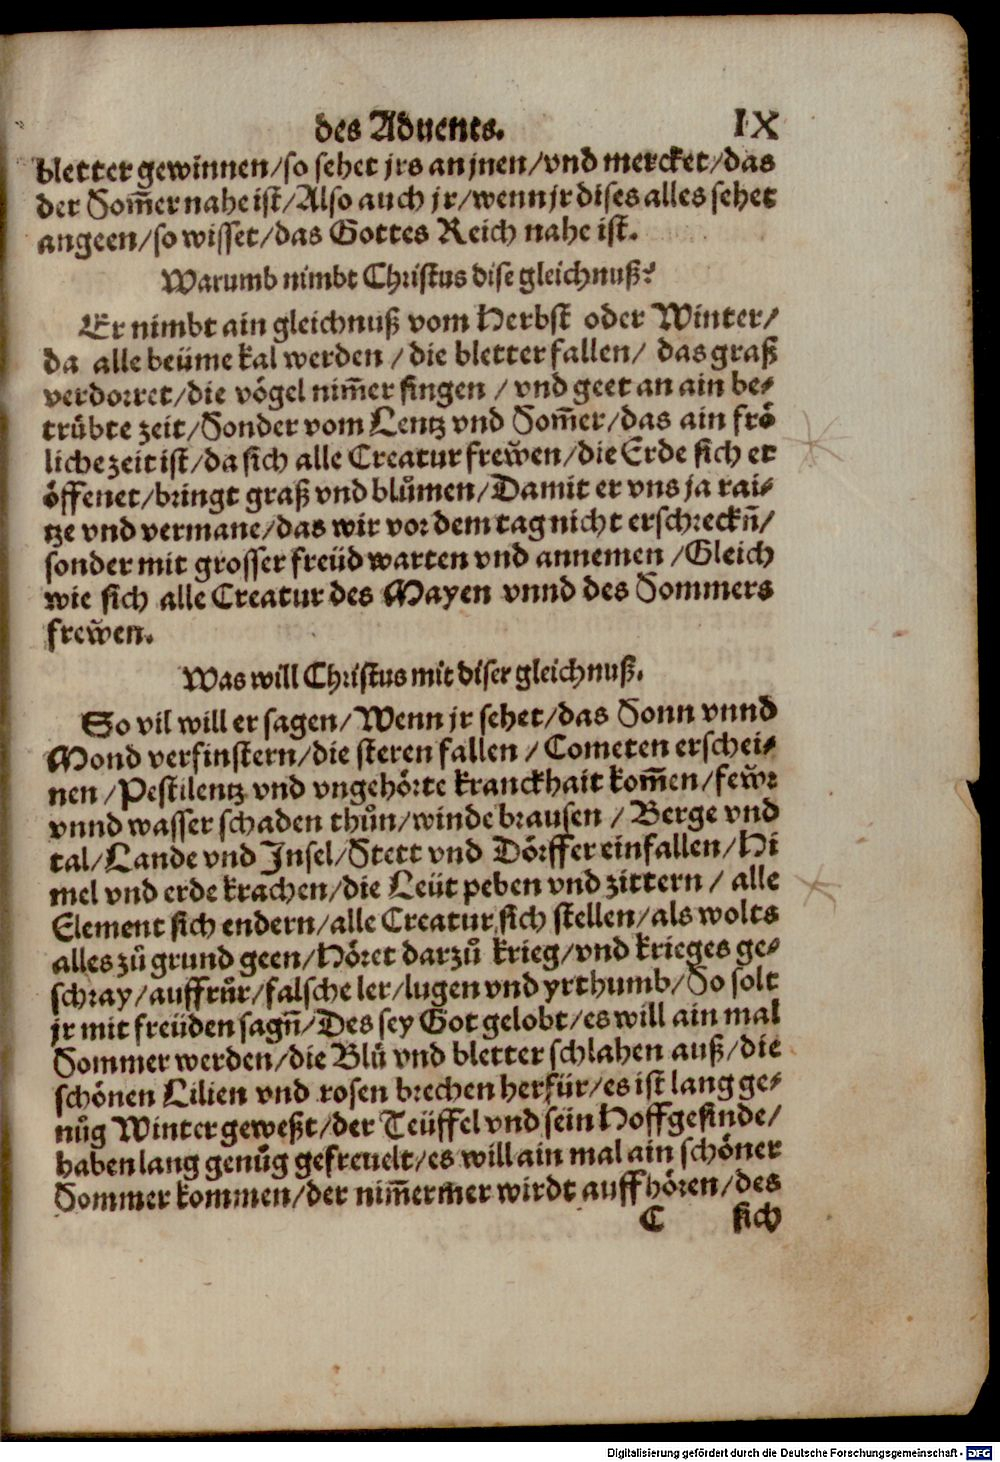 des Aduents.
IX
bletter gewinnen/so sehet jrs an jnen/vnd mercket/das
der Som̃er nahe ist/Also auch jr/wenn jr dises alles sehet
angeen/so wisset/das Gottes Reich nahe ist.
Warumb nimbt Christus dise gleichnuß?
Er nimbt ain gleichnuß vom Herbst oder Winter/
da alle beüme kal werden/die bletter fallen/ das graß
verdorret/die vögel nim̃er singen/vnd geet an ain be-
trübte zeit/Sonder vom Lentz vnd Som̃er/das ain frö
liche zeit ist/da sich alle Creatur frewͤen/die Erde sich er
öffenet/bringt graß vnd blůmen/Damit er vns ja rai-
tze vnd vermane/das wir vor dem tag nicht erschreckñ/
sonder mit grosser freüd warten vnd annemen/Gleich
wie sich alle Creatur des Mayen vnnd des Sommers
frewͤen.
Was will Christus mit diser gleichnuß.
So vil will er sagen/Wenn jr sehet/das Sonn vnnd
Mond verfinstern/die steren fallen/Cometen erschei-
nen/Pestilentz vnd vngehörte kranckhait kom̃en/fewͤr
vnnd wasser schaden thůn/winde brausen/Berge vnd
tal/Lande vnd Insel/Stett vnd Dörffer einfallen/Hi
mel vnd erde krachen/die Leüt peben vnd zittern/alle
Element sich endern/alle Creatur sich stellen/als wolts
alles zů grund geen/Höret darzů krieg/vnd krieges ge-
schray/auffrůr/falsche ler/lugen vnd yrthumb/So solt
jr mit freüden sagñ/Des sey Got gelobt/es will ain mal
Sommer werden/die Blů vnd bletter schlahen auß/die
schönen Lilien vnd rosen brechen herfür/es ist lang ge-
nůg Winter geweßt/der Teüffel vnd sein Hoffgesinde/
haben lang genůg gefreuelt/es will ain mal ain schöner
Sommer kommen/der nim̃ermer wirdt auffhören/des
C
sich
Digitalisierung gefördert durch die Deutsche Forschungsgemeinschaft - DFG